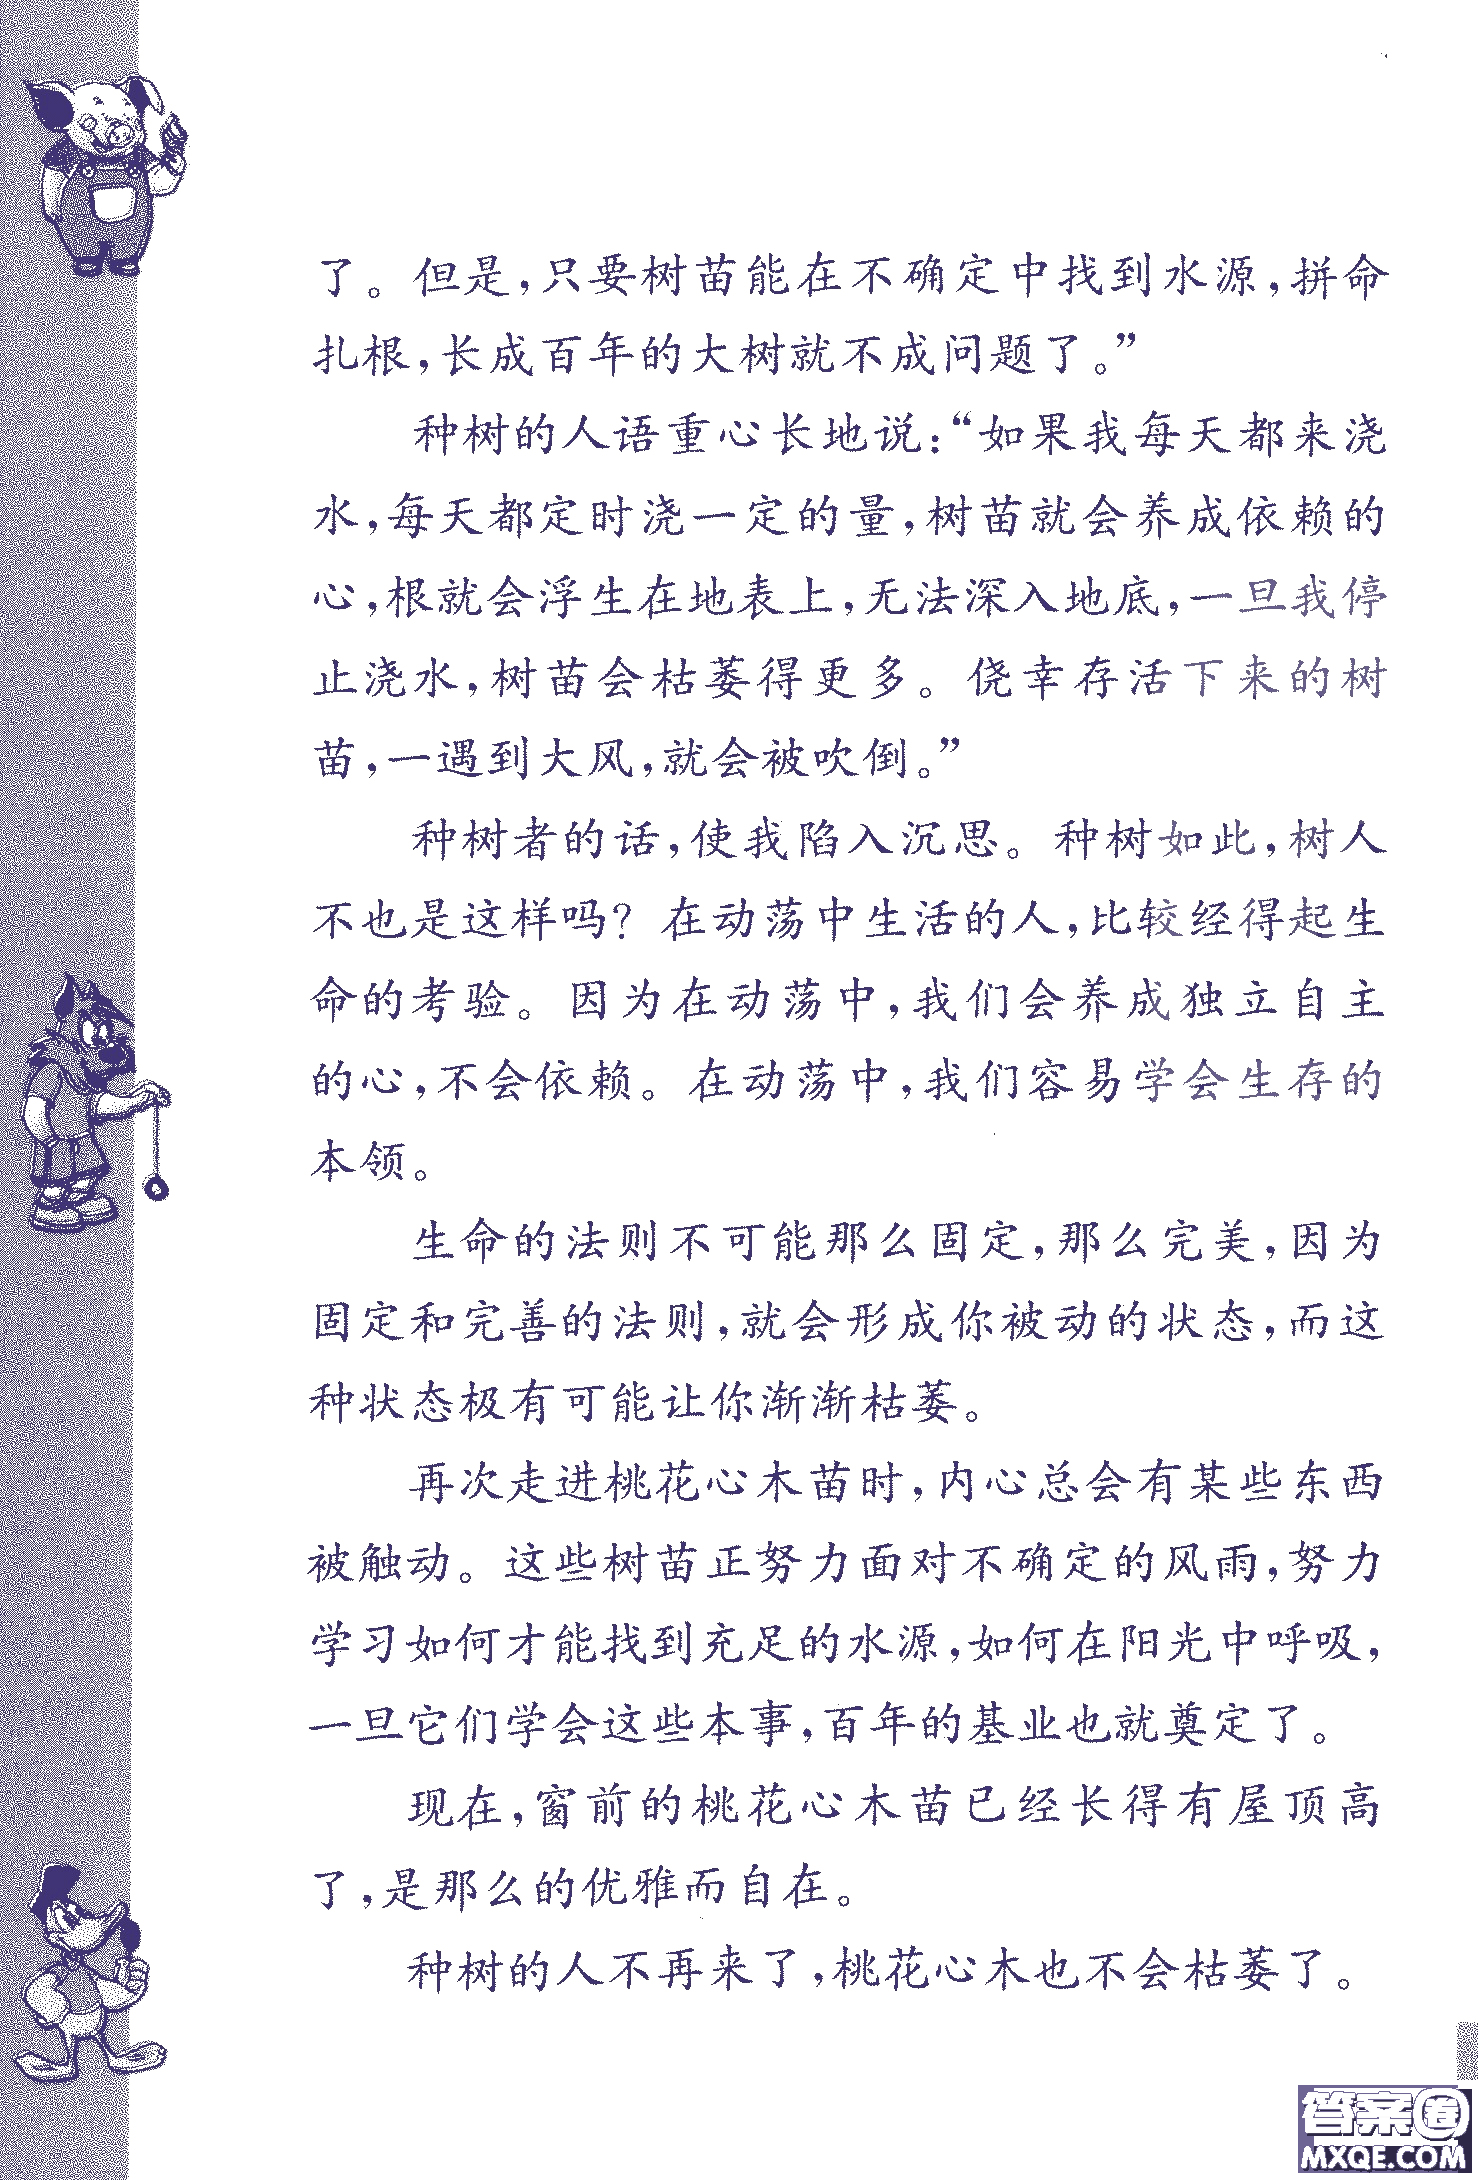 了。但是,只要树苗能在不确定中找到水源,拼命
扎根,长成百年的大树就不成问题了。”
种树的人语重心长地说:“如果我每天都来浇
水,每天都定时浇一定的量,树苗就会养成依赖的
心,根就会浮生在地表上,无法深入地底,一旦我停
止浇水,树苗会枯萎得更多。侥幸存活下来的树
苗,一遇到大风,就会被吹倒。”
种树者的话,使我陷入沉思。种树如此,树人
不也是这样吗?在动荡中生活的人,比较经得起生
命的考验。因为在动荡中,我们会养成独立自主
的心,不会依赖。在动荡中,我们容易学会生存的
本领。
生命的法则不可能那么固定,那么完美,因为
固定和完善的法则,就会形成你被动的状态,而这
种状态极有可能让你渐渐枯萎。
再次走进桃花心木苗时,内心总会有某些东西
被触动。这些树苗正努力面对不确定的风雨,努力
学习如何才能找到充足的水源,如何在阳光中呼吸,
一旦它们学会这些本事,百年的基业也就奠定了。
现在,窗前的桃花心木苗已经长得有屋顶高
了,是那么的优雅而自在。
种树的人不再来了,桃花心木也不会枯萎了。
答案圈
MXQE.COM